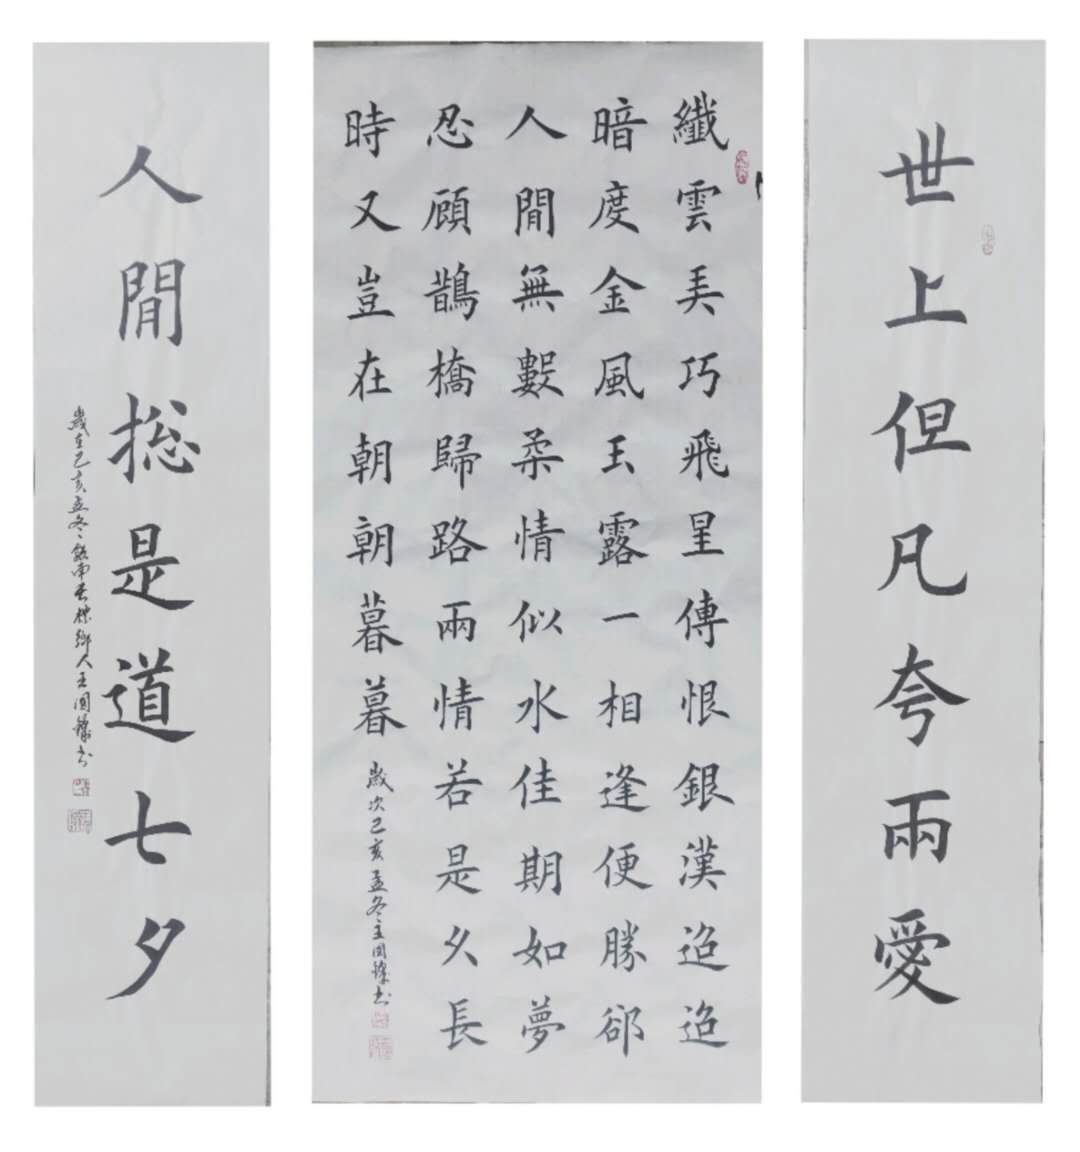 世上但凡夸兩愛
纖雲弄巧飛星傳恨銀漢迢迢
暗度金風玉露一相逢便勝郤
人閒無數柔情似水佳期如夢
忍顧鵲橋歸路兩情若是久長
時又豈在朝朝暮暮
歲次己亥孟冬王国书
人閒捴是道七夕
歲在己亥孟冬南鄉人王国书